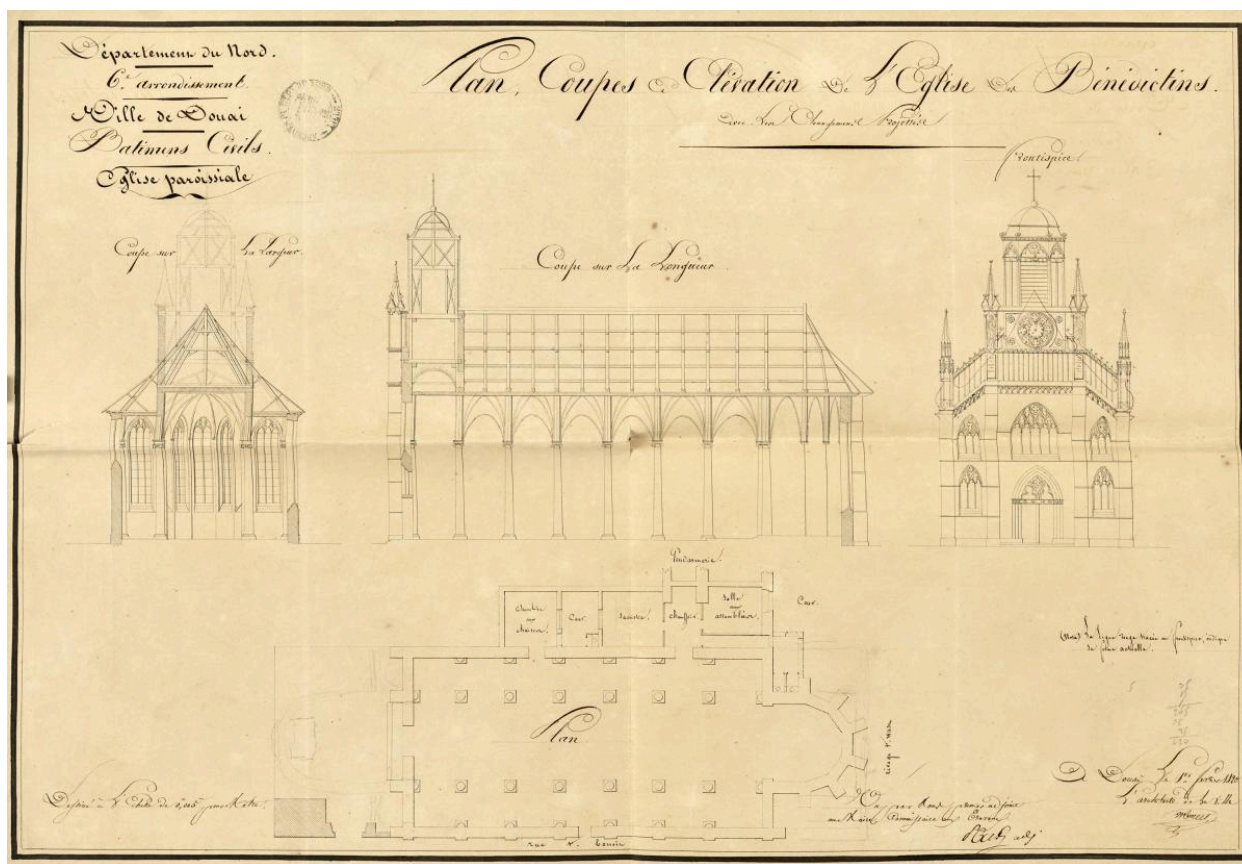 Département du Nord.
6.e arrondissement.
Ville de Douai
Batimens Civils.
Eglise paroissiale
Plan, Coupes et Elévation de l'Eglise des Bénédictins.
avec les Changemens Projettés
Frontispice.
Coupe sur La Largeur.
Coupe sur La Longueur.
Gendarmerie.
Chambre
Cour.
sacristie.
chauffoir
salle
aux
assemblées.
Cour.
Plan
(Nota) La ligne rouge tracée au frontispice, indique
sa forme actuelle.
Dessiné à l'échelle de 0,005 pour Mètre.
Vu par nous
au Maire Commissaire aux Travaux
A Douai, le 1.er
L'architecte de la Ville
rue St.